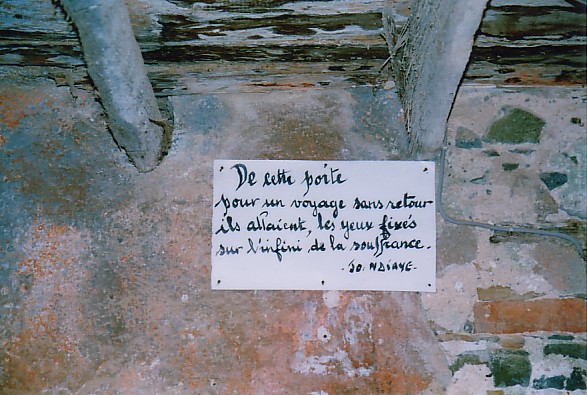 De cette porte
pour un voyage sans retour
ils allaient, les yeux fixés
sur l'infini de la souffrance.
- JO. NDIAYE -